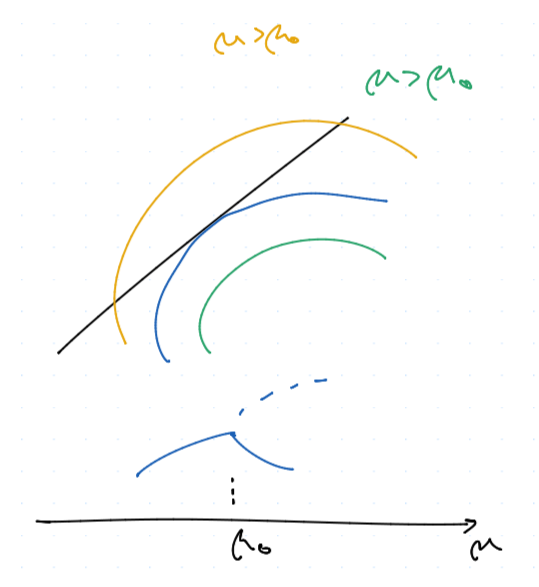 μ>μ₀
μ>μ₀
μ₀
μ